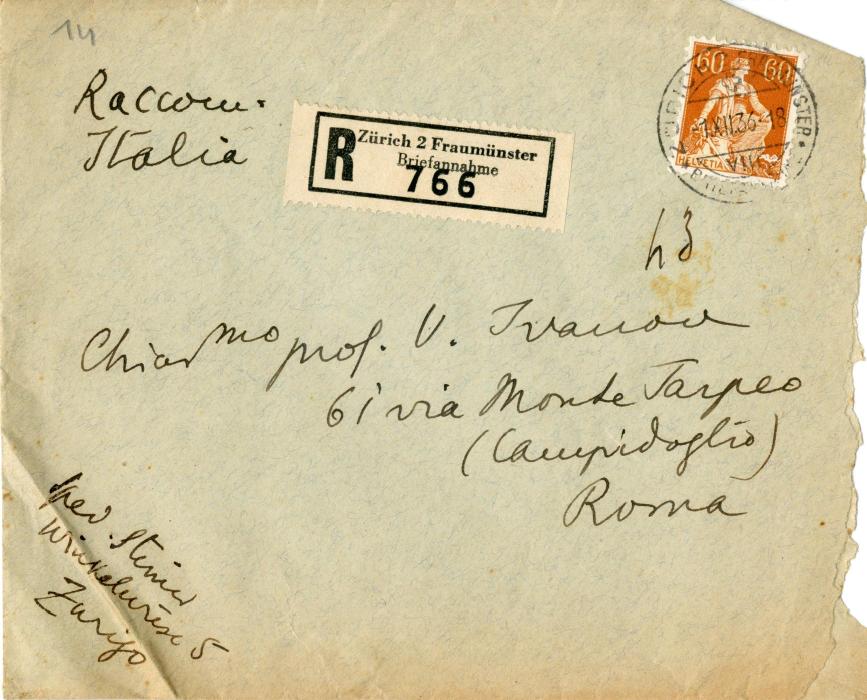 14
Raccom.
Italia
R
Zürich 2 Fraumünster
Briefannahme
766
60 60
HELVETIA
-1.XII.36-18
h3
Chiar mo prof. V. Ivanov
61 via Monte Tarpeo
(Campidoglio)
Roma
sped. Steiner
Winkelwiese 5
Zurigo